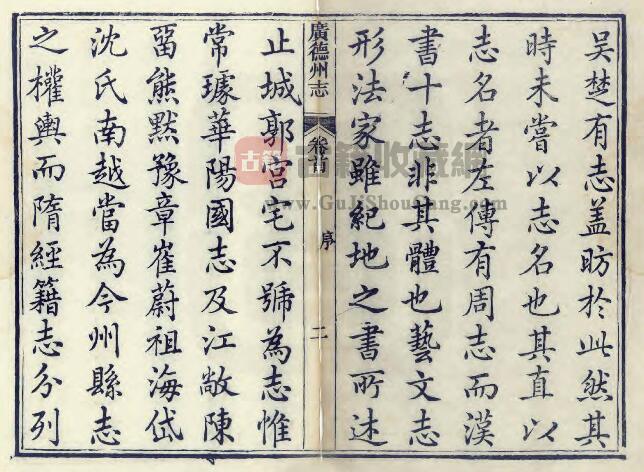 吳楚有志盖昉於此然其
時未嘗以志名也其直以
志名者左傳有周志而漢
書十志非其體也藝文志
形法家雖紀地之書所述
廣德州志
卷首
序
二
止城郭宮宅不號為志惟
常璩華陽國志及江敞陳
畱熊黙豫章崔蔚祖海岱
沈氏南越當為今州縣志
之權輿而隋經籍志分列
古籍
古籍收藏網
www.GuJiShouCang.com